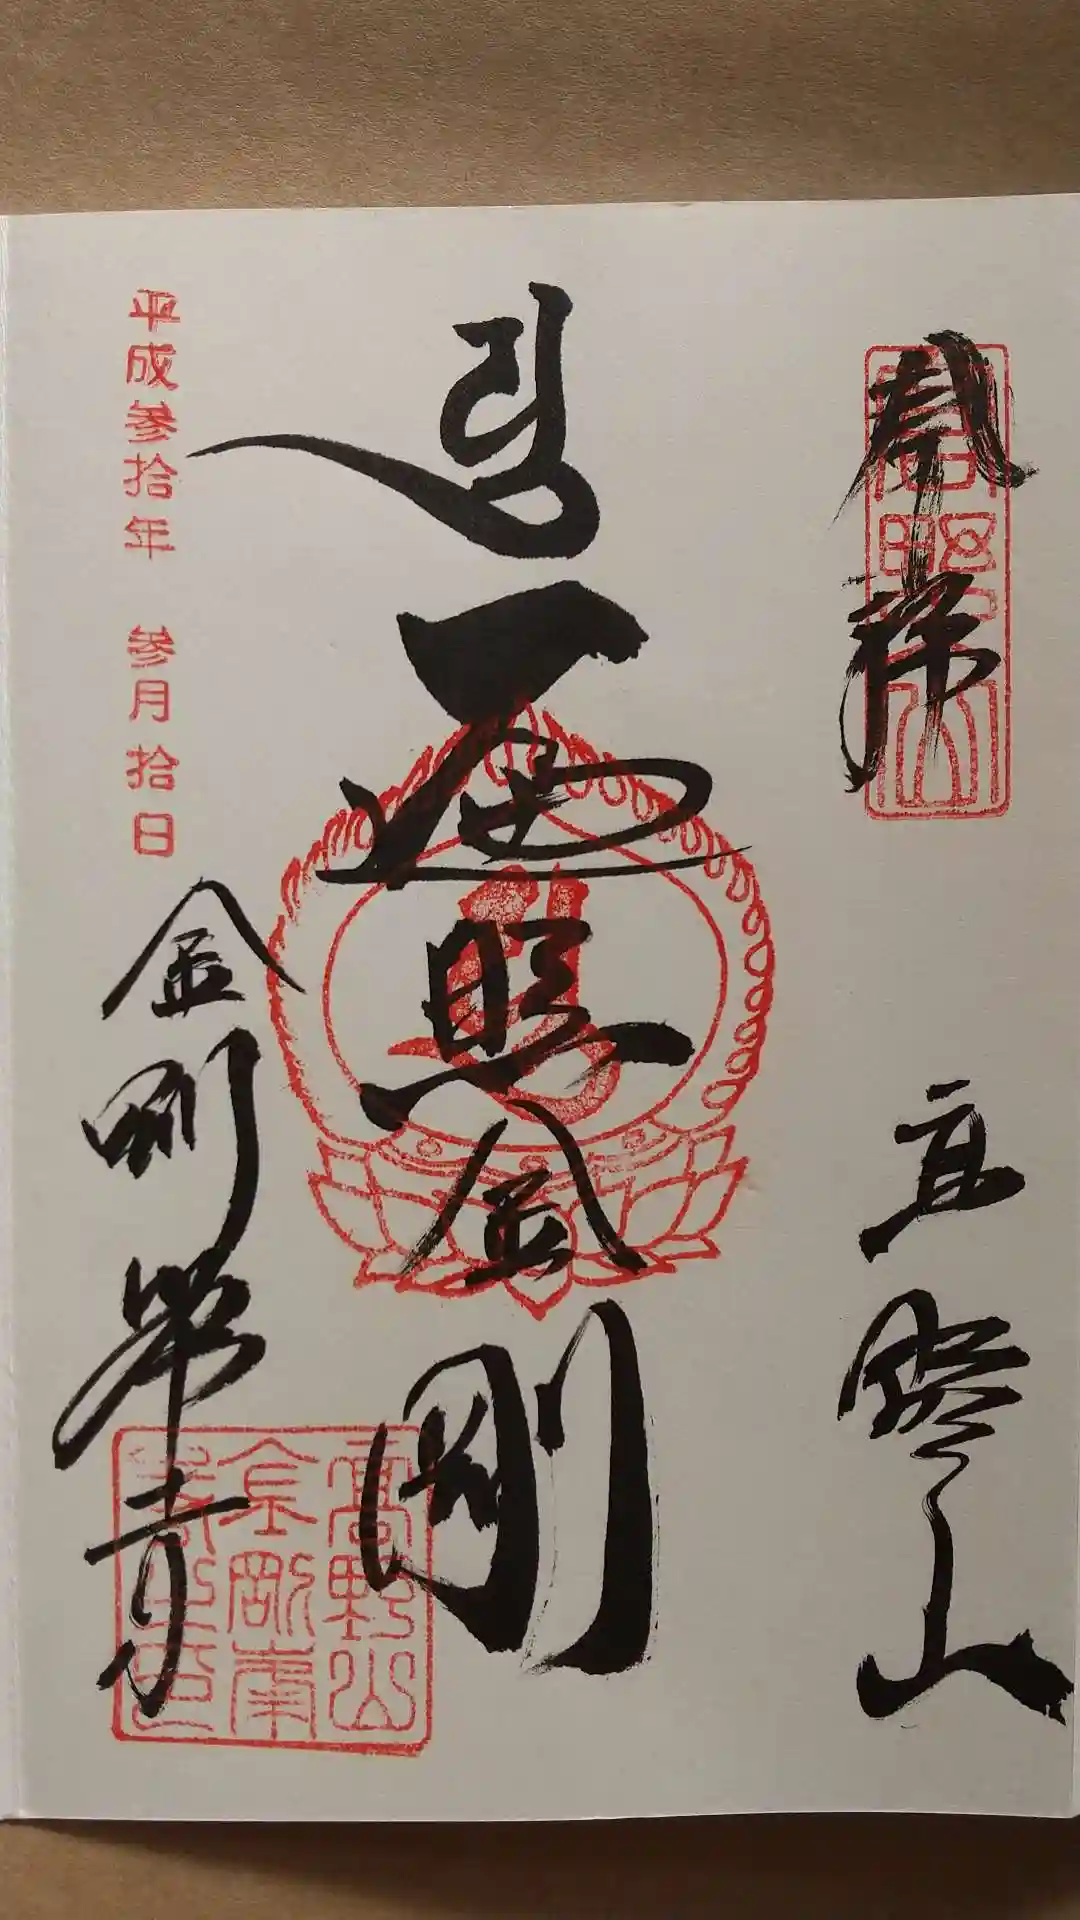 奉拝
高野山
遍照金剛
平成参拾年 参月拾日
金剛峯寺
高野山
金剛峯